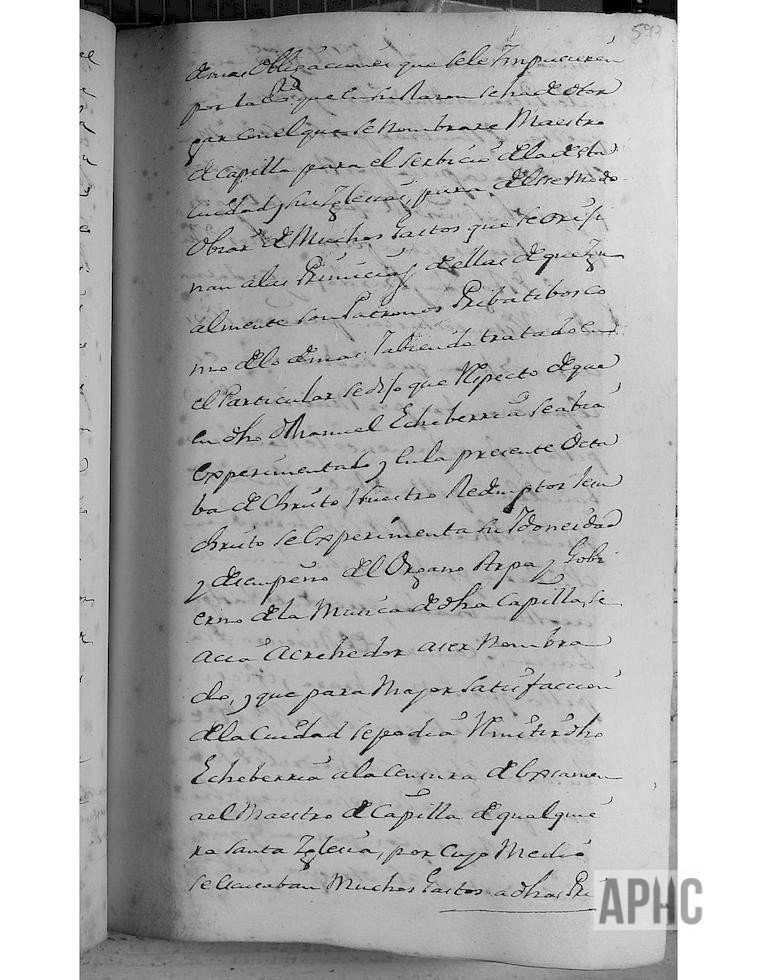 593
demas Obligaciones que sele Impusieren
por la que en su Razon se ha de otor
gar con el que se nombrare Maestro
de Capilla para el serbicio de la de esta
Ciudad y sus Iglesias, para de este modo
Obiar de Muchos Gastos que se origi
nan a las Primicias, de ellas de que Igu
almente son Patronos Pribatibos co
mo de lo demas: Y abiendo tratado en
el Particular se dijo que Respecto de que
en dho Manuel Echeberria se abia
experimentado y en la presente Octa
ba de Christo Nuestro Redemptor Sacra
christo se experimenta su Idoneidad
y desempeño del Organo Arpa y Gobi
erno de la Musica de dha Capilla, se
acia Acrehedor a ser Nombra
do, y que para Mayor satisfaccion
de la Ciudad se podia Remitir dho
Echeberria a la Censura de Examen
a el Maestro de Capilla de qualquie
ra Santa Iglesia, por cuyo Medio
se escusaban Muchos Gastos a dhas Pri
APHC